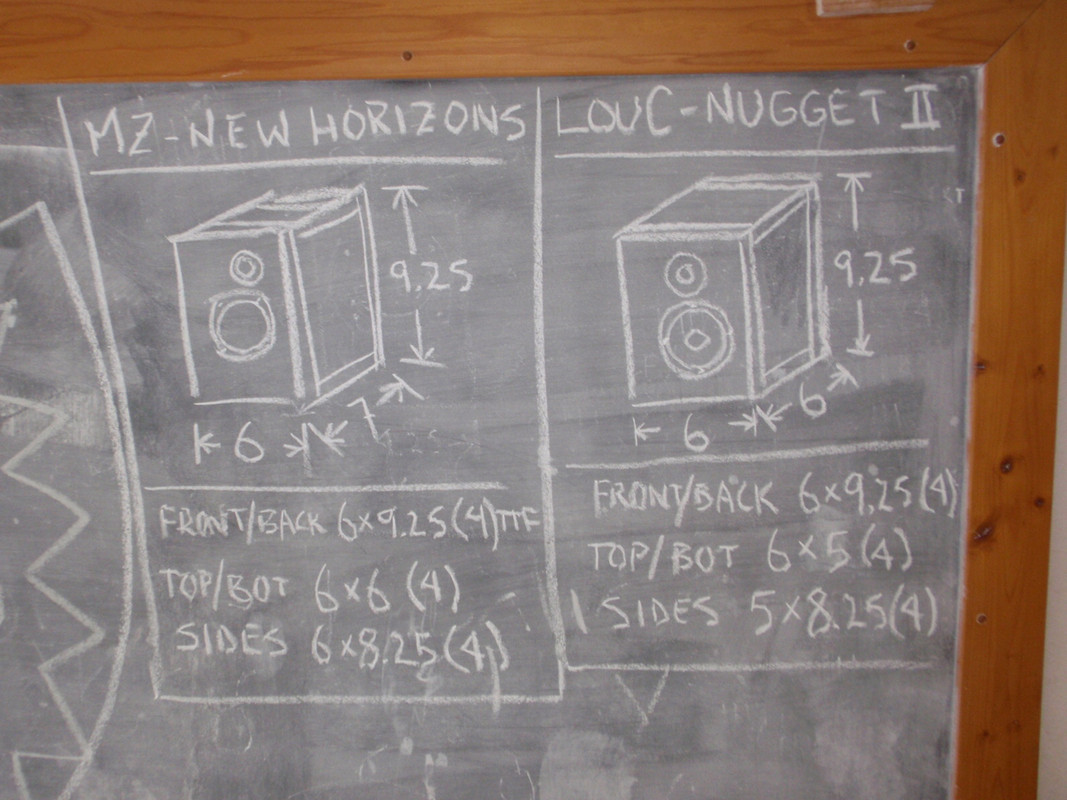 MZ-NEW HORIZONS
9.25
7
6
FRONT/BACK 6x9.25(4)TTF
TOP/BOT 6x6 (4)
SIDES 6x8.25(4)
LOUC-NUGGET II
9.25
6
6
FRONT/BACK 6x9.25(4)
TOP/BOT 6x5(4)
SIDES 5x8.25(4)